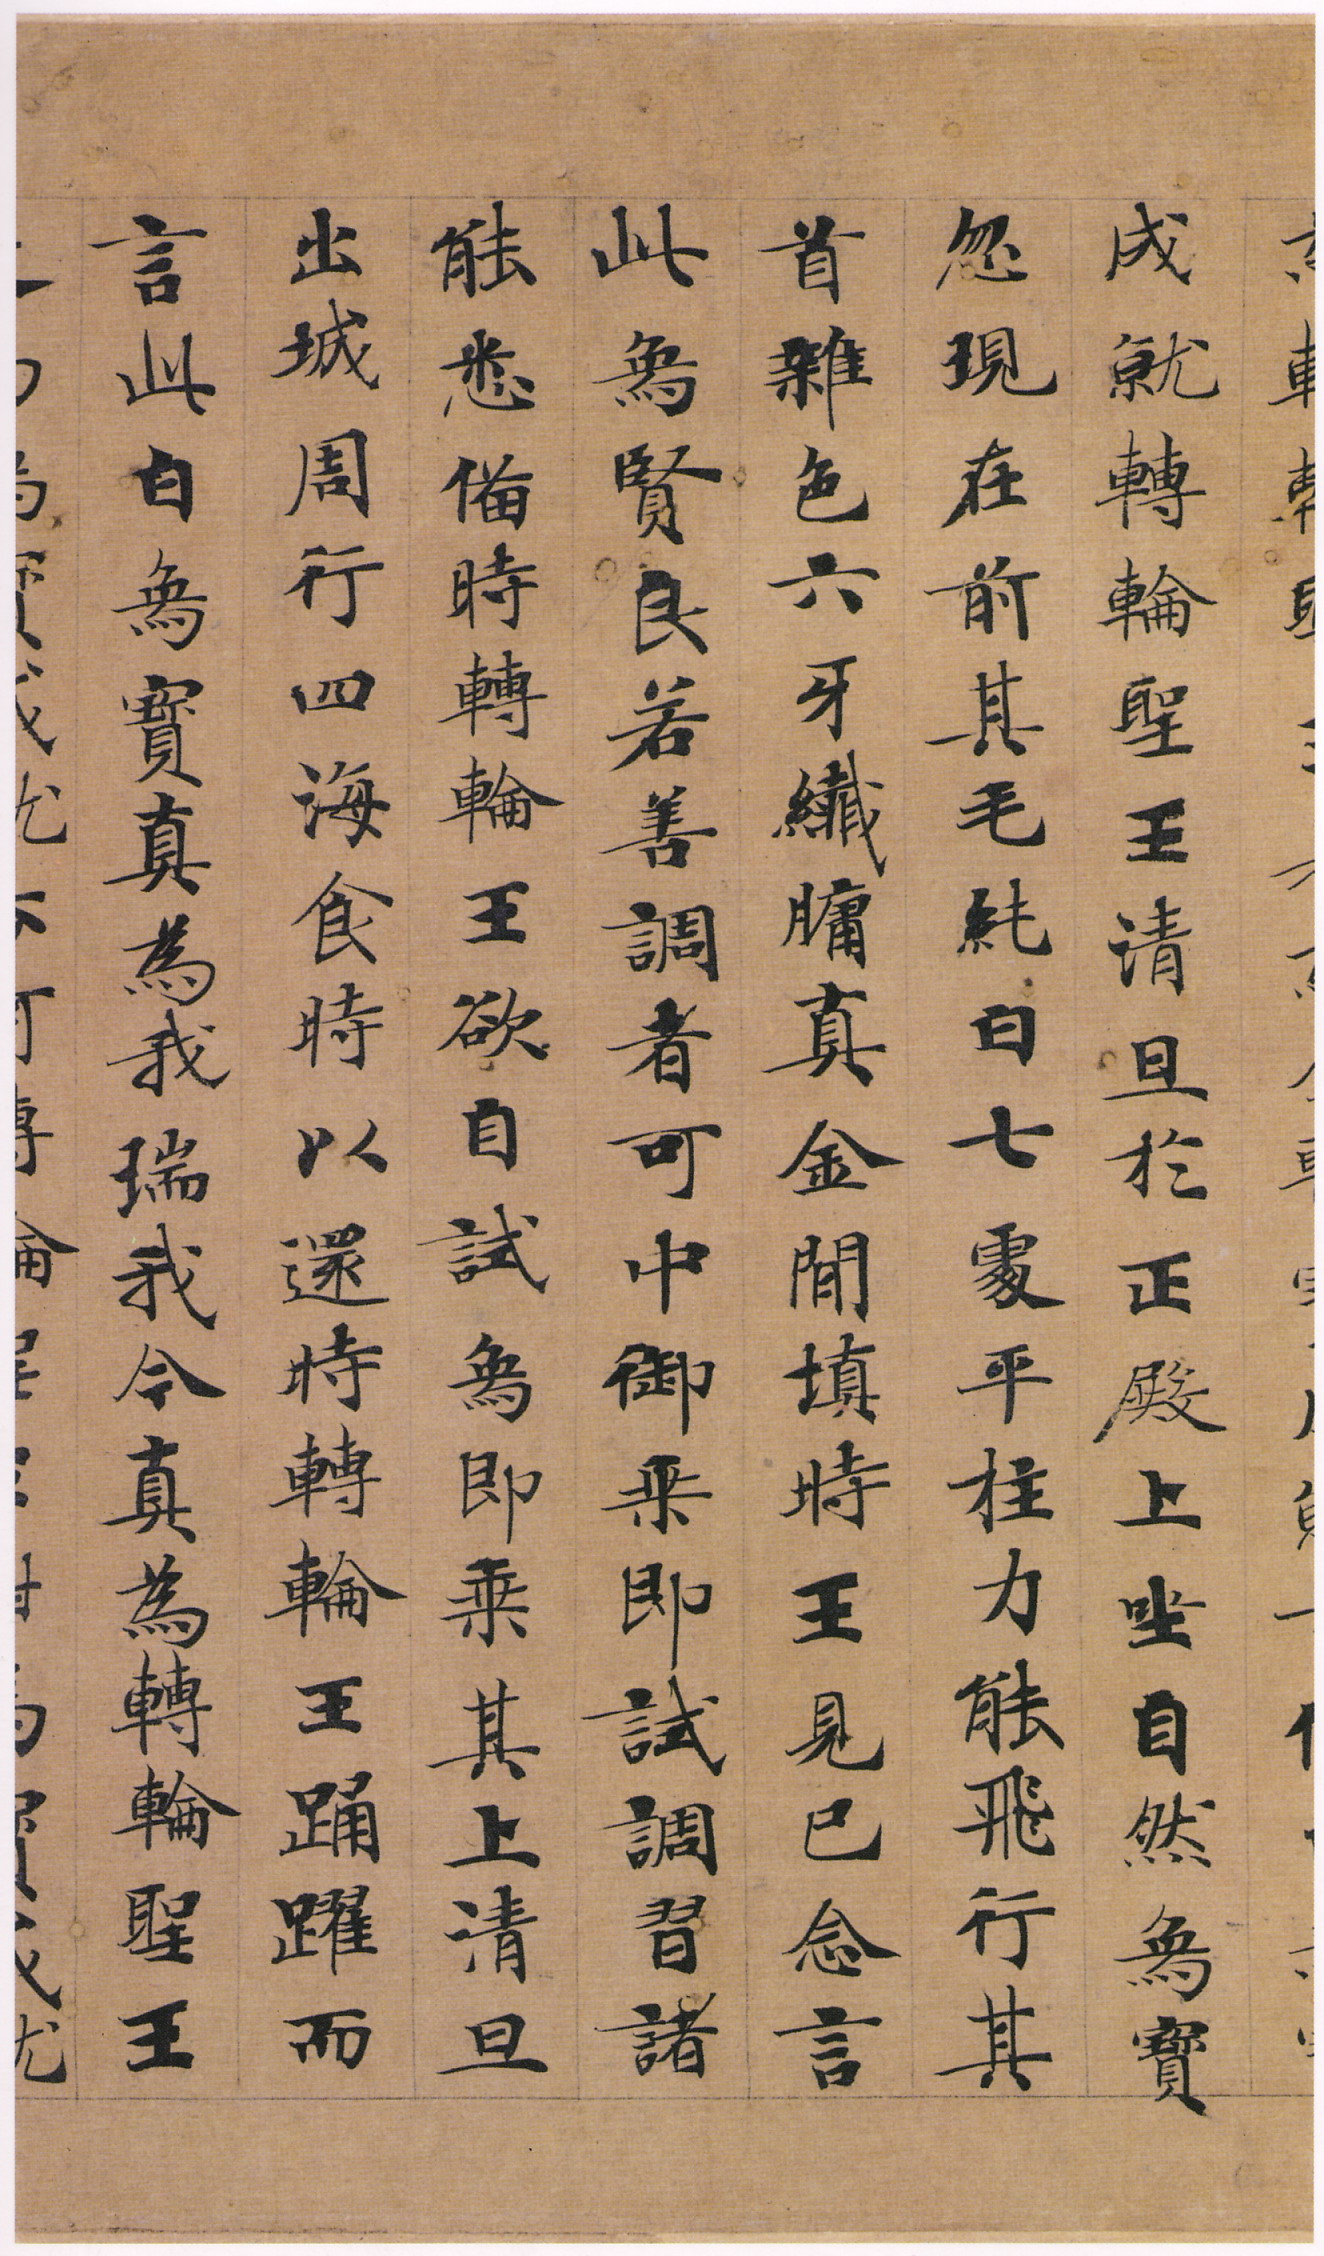 成就轉輪聖王清旦於正殿上坐自然為寶
忽現在前其毛純白七處平柱力能飛行其
首雜色六牙纖𦟛真金間填時王見已念言
此為賢良若善調者可中御乘即試調習諸
能悉俻時轉輪王欲自試為即乘其上清旦
出城周行四海食時以還時轉輪王踊躍而
言此白為寶真為我瑞我今真為轉輪聖王